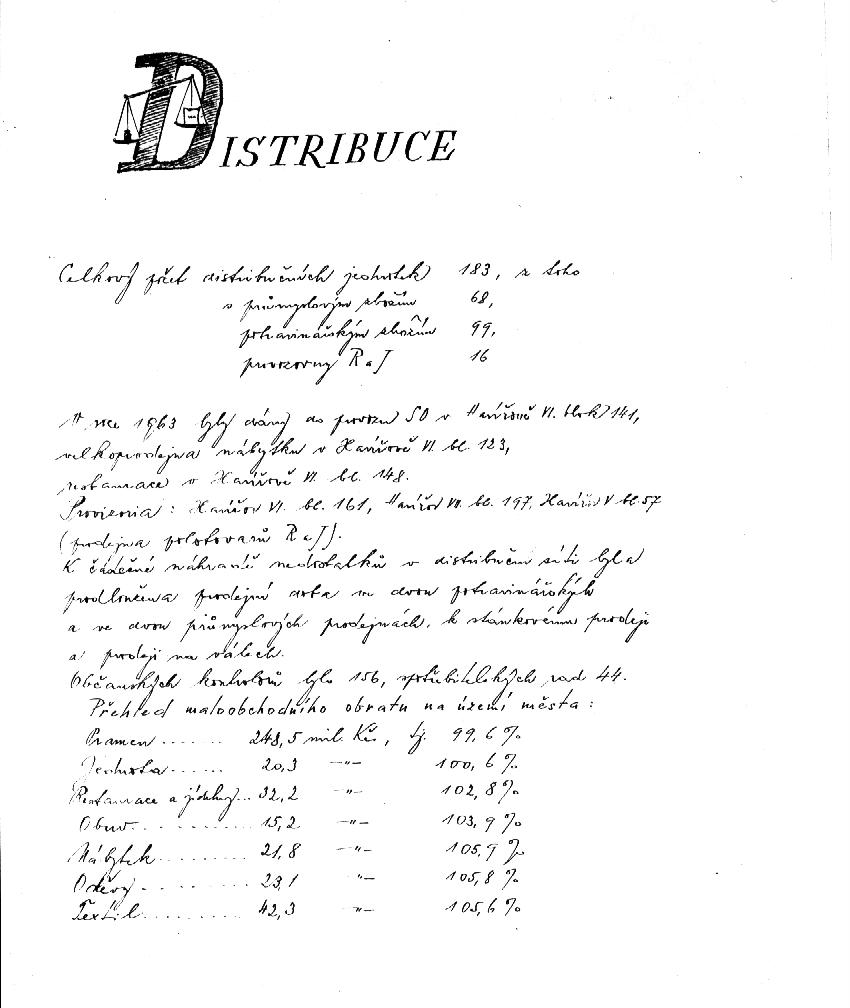 DISTRIBUCE
Celkový počet distribučních jednotek 183, z toho
s průmyslovým zbožím 68,
potravinářským zbožím 99,
provozovny RaJ 16
V roce 1963 byly dány do provozu SO v Havířově VI. blok 141,
velkoprodejna nábytku v Havířově VI. bl. 123,
restaurace v Havířově VI. bl. 148.
Provizoria: Havířov VI. bl. 161, Havířov VII. bl. 197, Havířov V bl 57
(prodejna polotovarů RaJ).
K částečné náhradě nedostatků v distribuční síti byla
prodloužena prodejní doba ve dvou potravinářských
a ve dvou průmyslových prodejnách, k stánkovému prodeji
a prodeji na válech.
Občanských kontrolorů bylo 156, spotřebitelských rad 44.
Přehled maloobchodního obratu na území města:
Pramen ....... 248,5 mil. Kčs, tj. 99,6 %
Jednota ...... 20,3 —"— 100,6 %
Restaurace a jídelny... 32,2 —"— 102,8 %
Obuv. .......... 15,2 —"— 103,9 %
Nábytek ......... 21,8 —"— 105,9 %
Oděvy .......... 23,1 "— 105,8 %
Textil .......... 42,3 "— 105,6 %